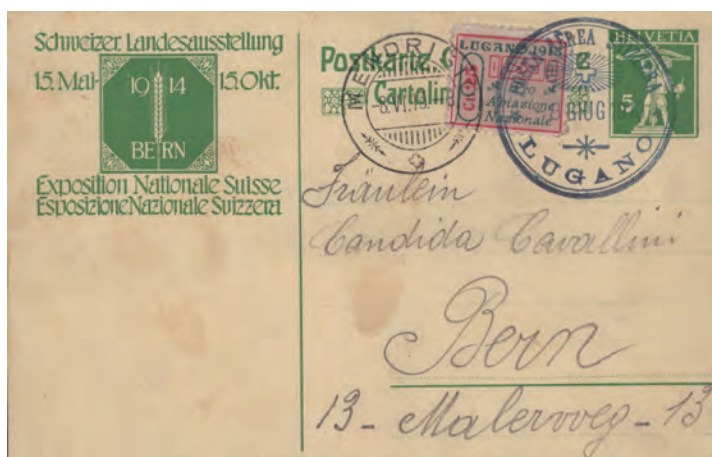 Schweizer. Landesausstellung
15. Mai - 15. Okt.
19 14
BERN
Exposition Nationale Suisse
Esposizione Nazionale Svizzera
Postkarte
Cartolin
LUGANO 1913
Aviazione
Nazionale
LUGANO
GIUG
HELVETIA
5
Fräulein
Candida Cavallini
Bern
13 - Malerweg - 13